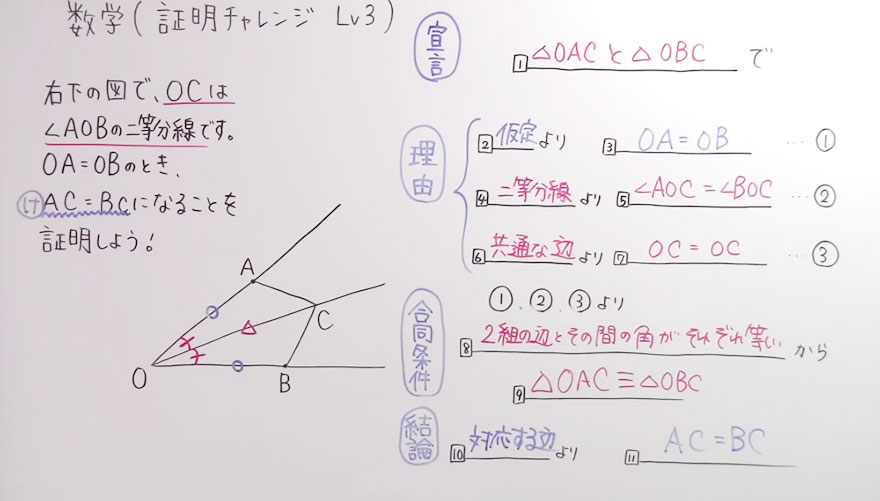 数学(証明チャレンジ Lv3)
右下の図で、OCは
∠AOBの二等分線です。
OA=OBのとき、
け AC=BCになることを
証明しよう!
A
C
O
B
宣言
1 △OACと△OBC で
理由
2 仮定より 3 OA=OB … ①
4 二等分線より 5 ∠AOC=∠BOC … ②
6 共通な辺より 7 OC=OC … ③
合同条件
①、②、③より
8 2組の辺とその間の角がそれぞれ等しい から
9 △OAC≡△OBC
結論
10 対応する辺より 11 AC=BC